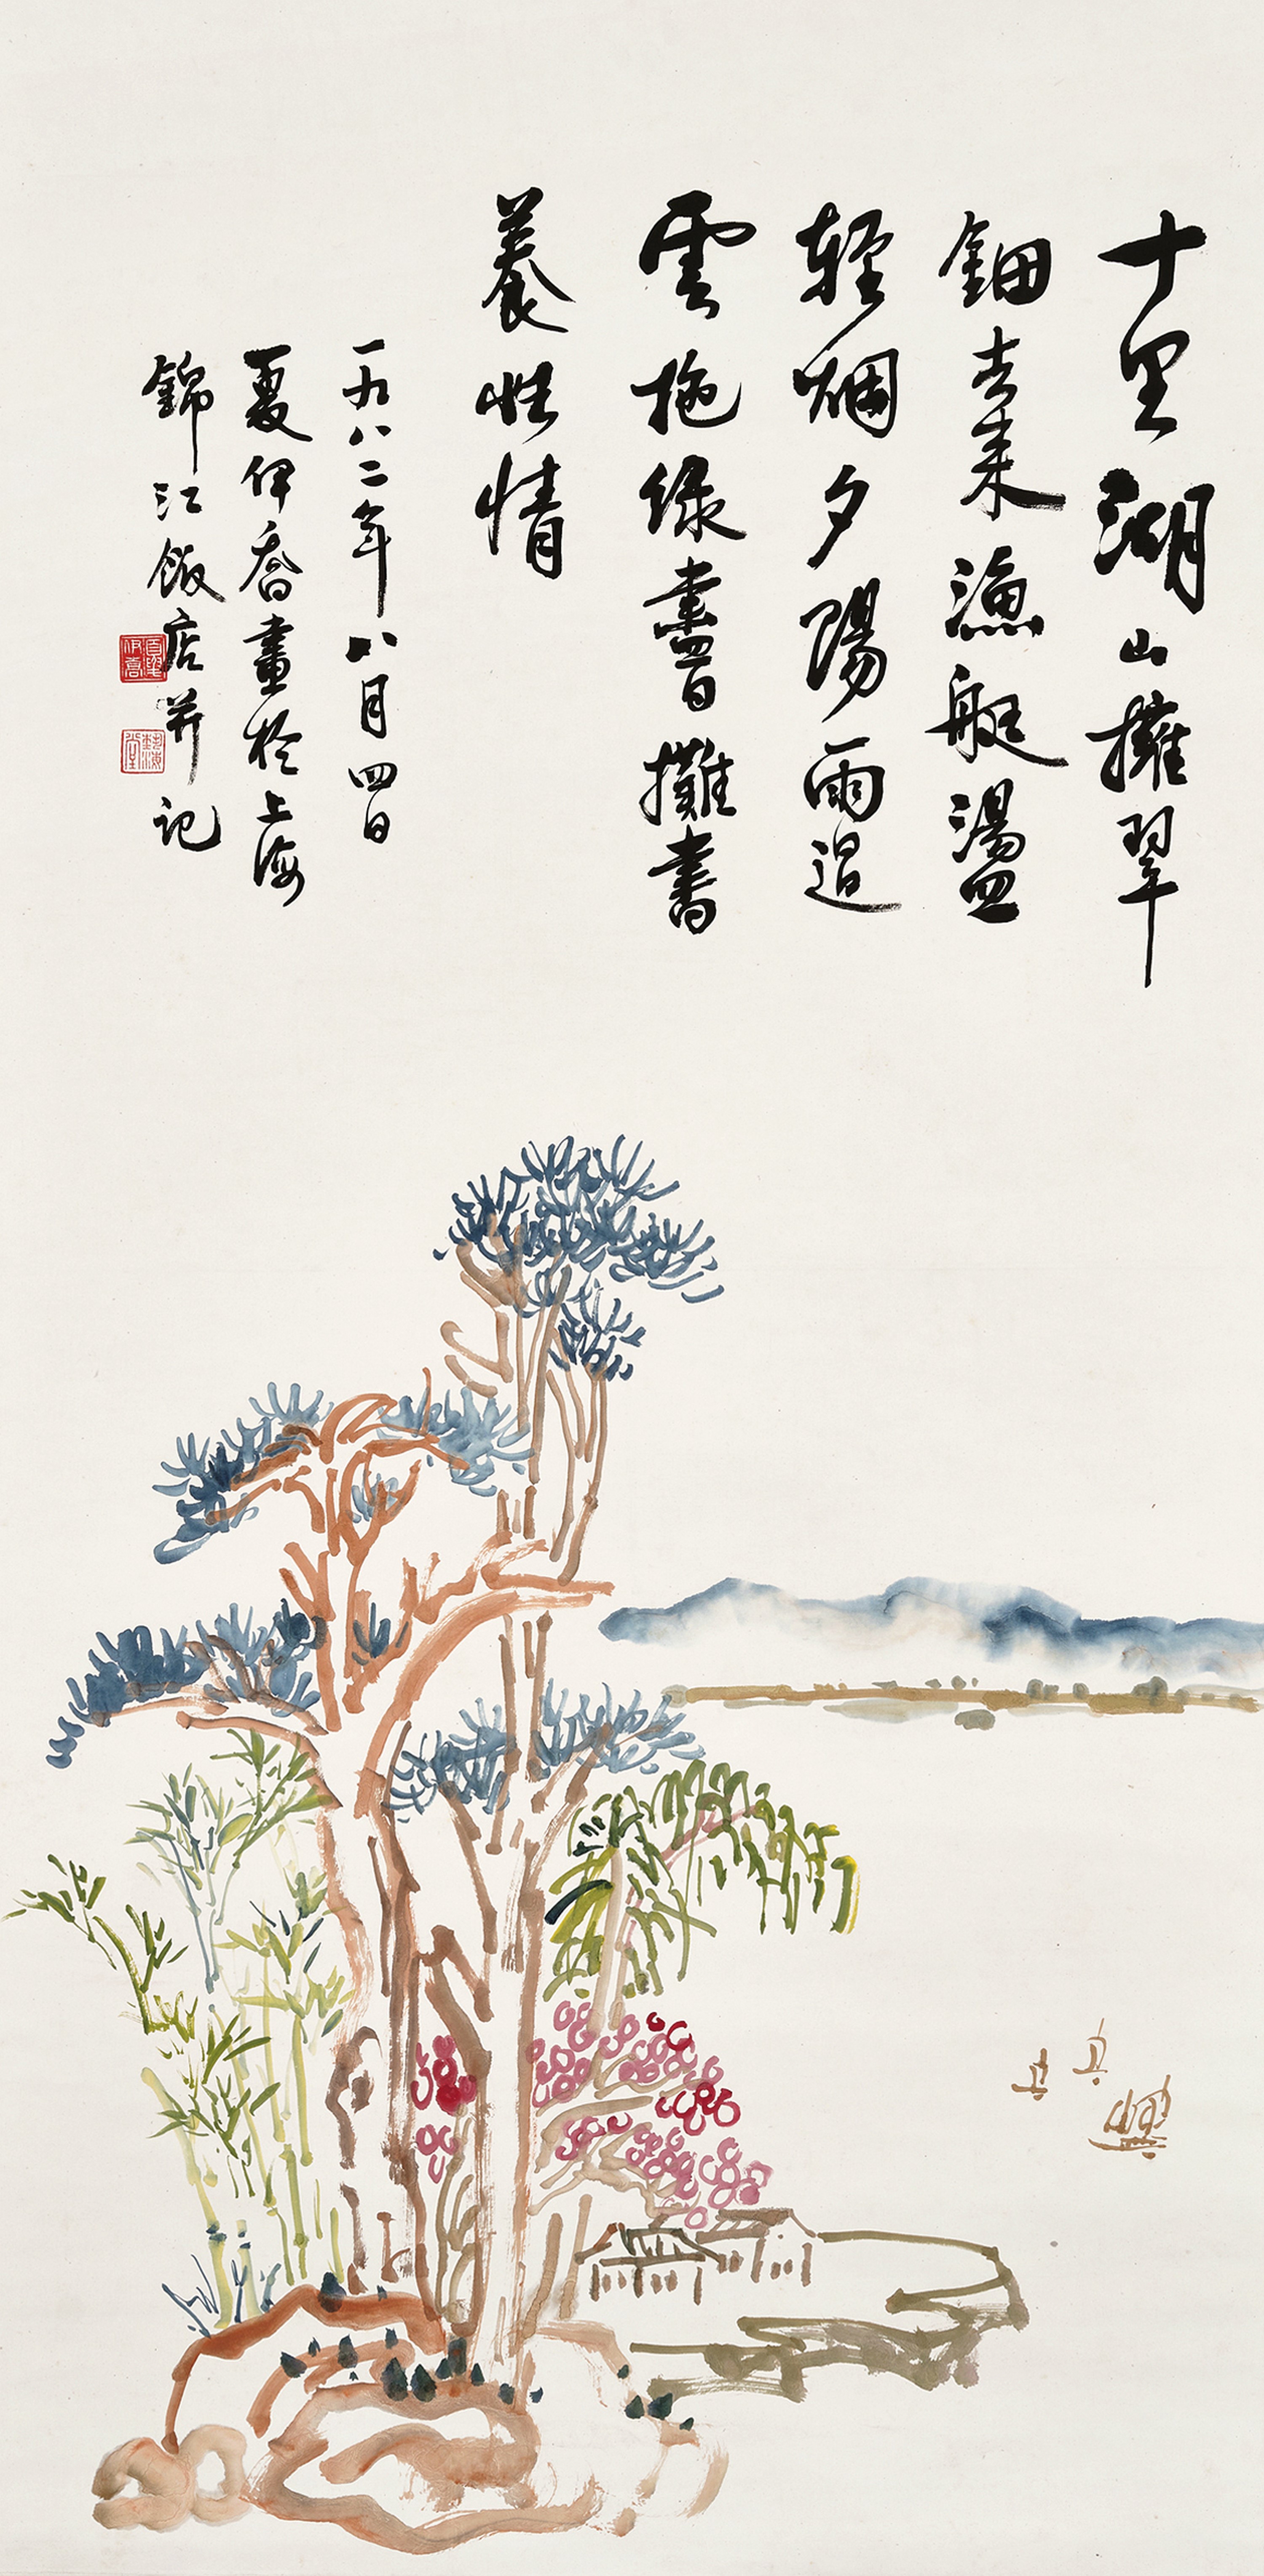 十里湖山擁翠
鈿去来漁艇盪
輕烟夕陽雨過
雲拖綠盡日攤書
養性情
一九八二年八月四日
夏伊喬畫於上海
錦江飯店并記
夏伊喬
藝海堂